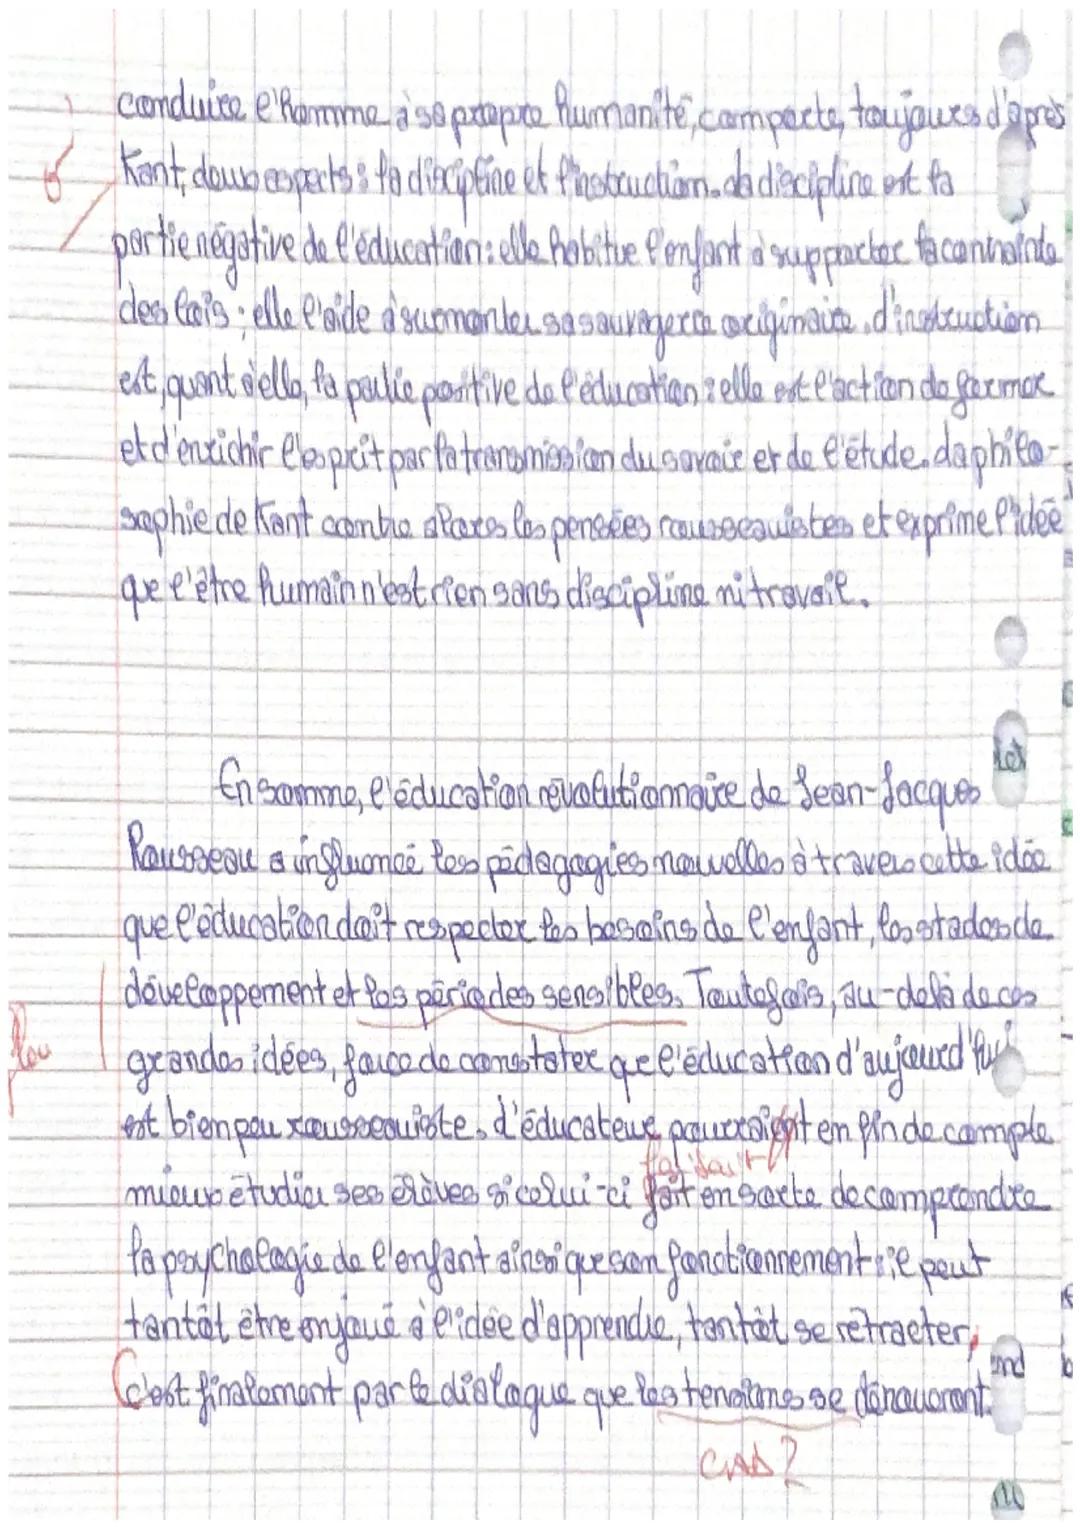 conduire l'homme à sa propre humanité, comporte, toujours d'après
Kant, deux aspects : la discipline et l'instruction. La discipline est la
partie négative de l'éducation : elle habitue l'enfant à supporter la contrainte
des lois ; elle l'aide à surmonter sa sauvagerie originaire. L'instruction
est, quant à elle, la partie positive de l'éducation : elle est l'action de former
et d'enrichir l'esprit par la transmission du savoir et de l'étude. La philo-
sophie de Kant contre alors les pensées rousseauistes et exprime l'idée
que l'être humain n'est rien sans discipline ni travail.
En somme, l'éducation révolutionnaire de Jean-Jacques
Rousseau a influencé les pédagogies nouvelles à travers cette idée
que l'éducation doit respecter les besoins de l'enfant, les stades de
développement et les périodes sensibles. Toutefois, au-delà de ces
flou
grandes idées, force de constater que l'éducation d'aujourd'hui
est bien peu rousseauiste. L'éducateur pourraient en fin de compte
faisait
mieux étudier ses élèves si celui-ci fait en sorte de comprendre
la psychologie de l'enfant ainsi que son fonctionnement : il peut
tantôt être enjoué à l'idée d'apprendre, tantôt se rétracter,
c'est finalement par le dialogue que les tensions se dénoueront.
CAD ?